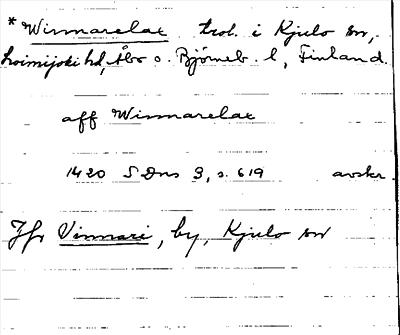 * Winmarelax trol. i Kjulo sn,
Loimijoki hd, Åbo o. Björneb. l, Finland.
aff Winmarelax
1420 SDns 3, s. 619 avskr.
Jfr Vinnari, by, Kjulo sn